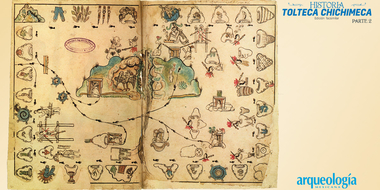 HISTORIA
TOLTECA CHICHIMECA
PARTE II
arqueología
MEXICANA